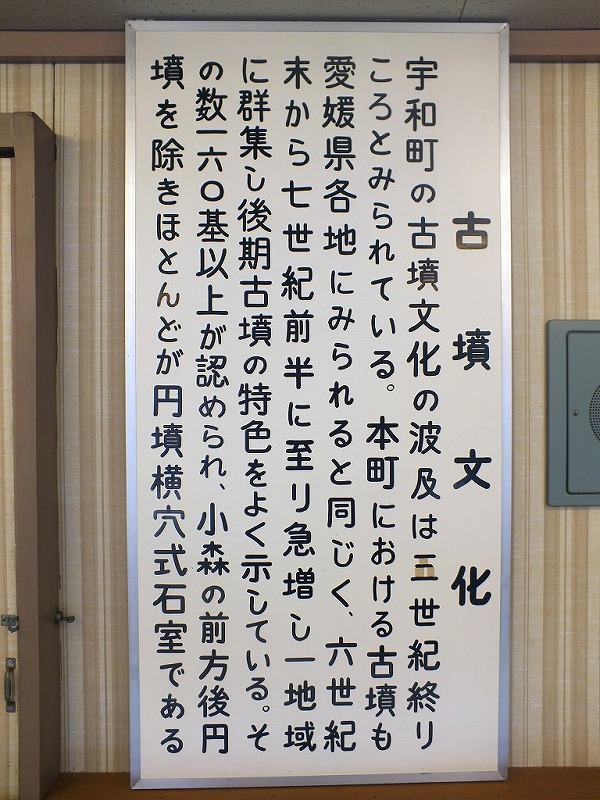 古墳文化
宇和町の古墳文化の波及は五世紀終り
ころとみられている。本町における古墳も
愛媛県各地にみられると同じく、六世紀
末から七世紀前半に至り急増し一地域
に群集し後期古墳の特色をよく示している。そ
の数一六〇基以上が認められ、小森の前方後円
墳を除きほとんどが円墳横穴式石室である